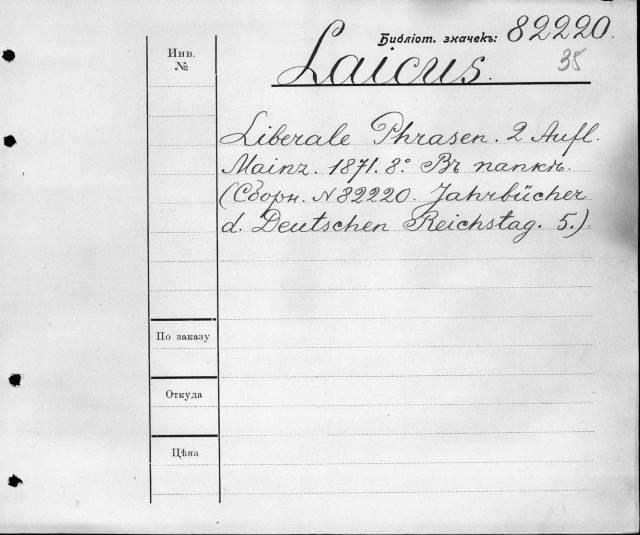 Библіот. значекъ: 82220.
38
Инв.
№
Laicus.
Liberale Phrasen. 2 Aufl.
Mainz. 1871. 8º. Въ папкѣ.
(Сборн. N 82220. Jahrbücher
d. Deutschen Reichstag. 5.)
По заказу
Откуда
Цѣна